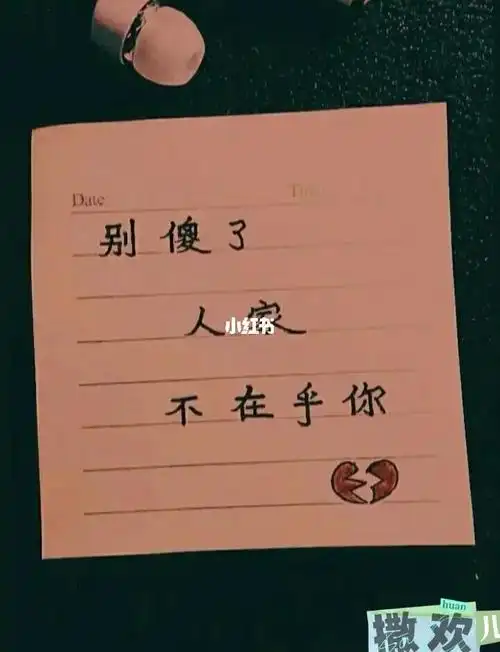 Date
别傻了
人家
小红书
不在乎你
huan
撒欢儿